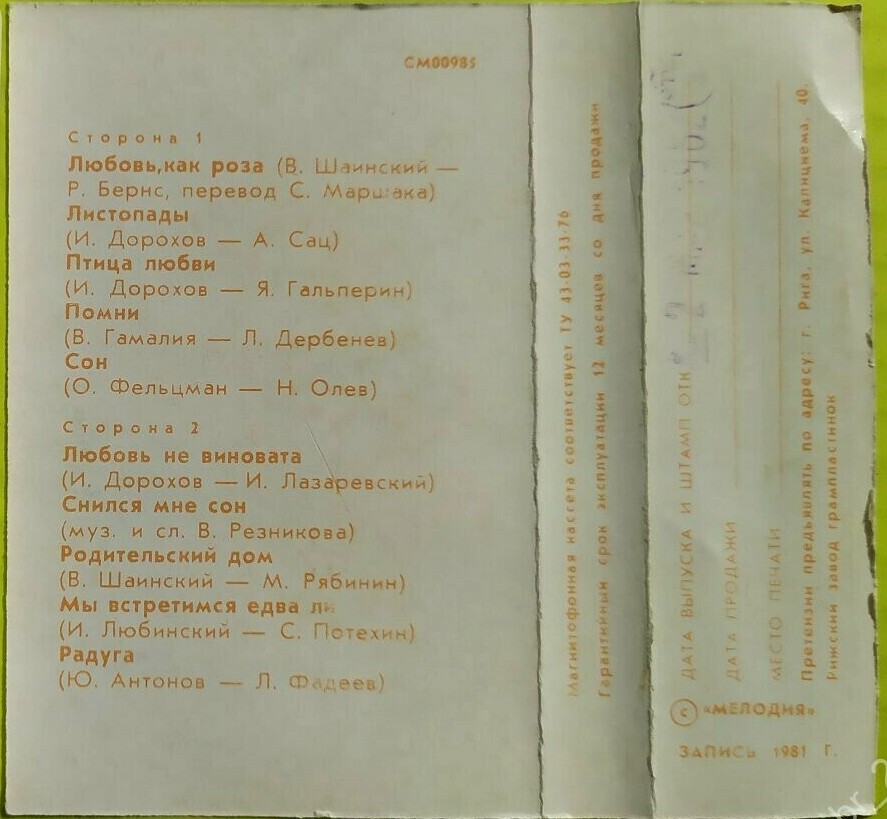 СМ00985
Сторона 1
Любовь, как роза (В. Шаинский —
Р. Бернс, перевод С. Маршака)
Листопады
(И. Дорохов — А. Сац)
Птица любви
(И. Дорохов — Я. Гальперин)
Помни
(В. Гамалия — Л. Дербенев)
Сон
(О. Фельцман — Н. Олев)
Сторона 2
Любовь не виновата
(И. Дорохов — И. Лазаревский)
Снился мне сон
(муз. и сл. В. Резникова)
Родительский дом
(В. Шаинский — М. Рябинин)
Мы встретимся едва ли
(И. Любинский — С. Потехин)
Радуга
(Ю. Антонов — Л. Фадеев)
Магнитофонная кассета соответствует ТУ 43-03-33-76
Гарантийный срок эксплуатации 12 месяцев со дня продажи
ДАТА ВЫПУСКА И ШТАМП ОТК
ДАТА ПРОДАЖИ
МЕСТО ПЕЧАТИ
Претензии предъявлять по адресу: г. Рига, ул. Калнциема, 40.
Рижский завод грампластинок
© «МЕЛОДИЯ»
ЗАПИСЬ 1981 Г.